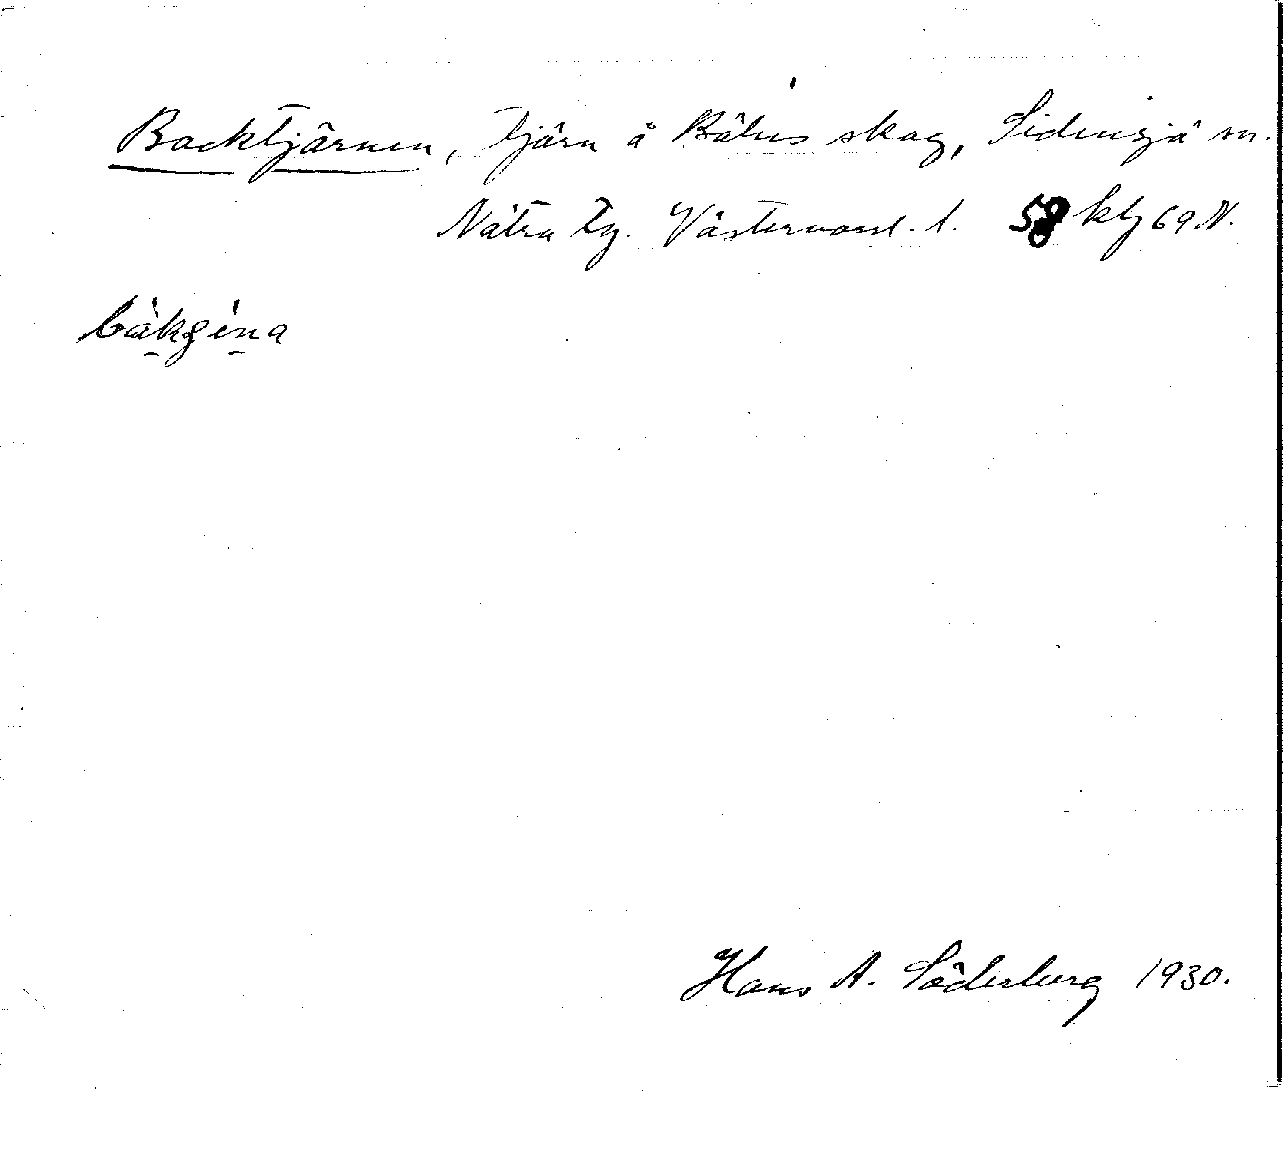 Backtjärnen, tjärn å Bäl:s skog, Sidensjö sn.
Nätra tg. Västernorrl. l. 58 kbl 69 N.
bàkgèna
Hans A. Söderberg 1930.